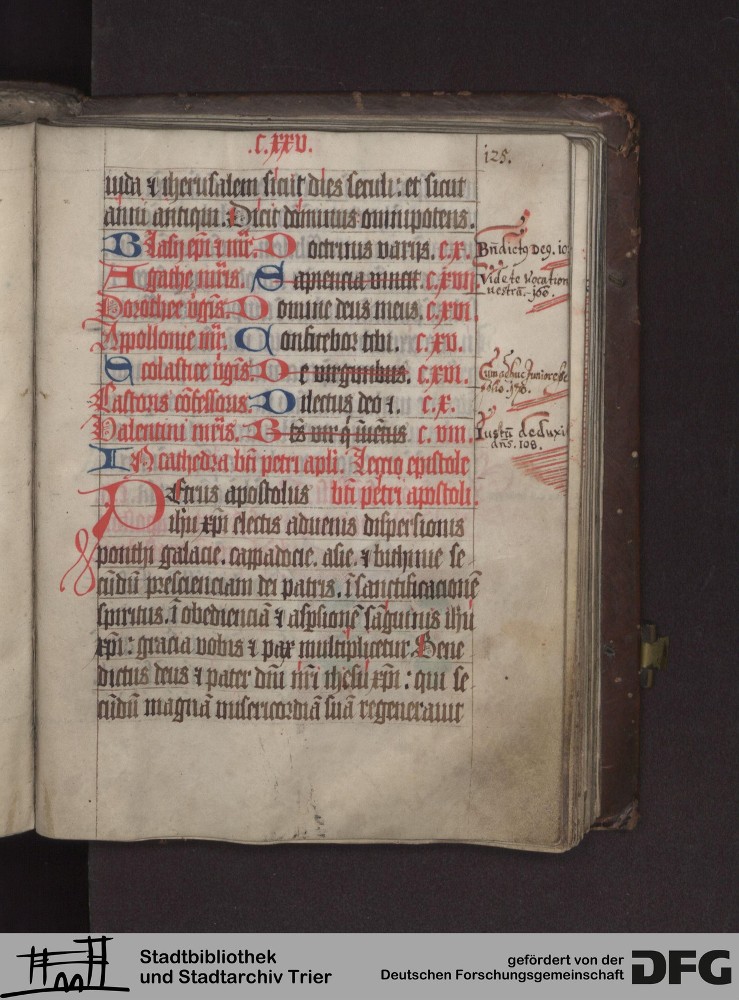 .c.xxv.
125.
uida ⁊ iherusalem sicut dies seculi: et sicut
anni antiqui. Dicit dominus omnipotens.
Blasij epi ⁊ mr̄. Doctrinis varijs. c.x.
Agathe mr̄is. Sapiencia vincit. c.xvii.
Dorothee v̄gīs. Domine deus meus. c.xvi.
Appollonie mr̄. Confitebor tibi. c.xv.
Scolastice v̄gīs. De virginibus. c.xvi.
Castoris cōfessoris. Dilectus deo ⁊. c.x.
Valentini mr̄is. Bt̄s vir q̇ inuētus c. viii.
IN cathedra bt̄i petri apli. Lectio epistole
PEtrus apostolus bt̄i petri apostoli.
ihu xp̄i electis aduenis dispersionis
ponthi galacie. cappadocie. asie. ⁊ bithinie se
cūdū prescienciam dei patris. ī sanctificacionē
spiritus. ī obedienciā ⁊ aspsionē sāguinis ihū
xp̄i: gracia vobis ⁊ pax multiplicetur. Bene
dictus deus ⁊ pater dn̄i nr̄i ihesu xp̄i: qui se
cūdū magnā misericordiā suā regenerauit
Bn̄dict9 De9. io
Videte Vocation
uestrā. 160.
Cum adhuc Junior
Iustū deduxi
dns. 108.
Stadtbibliothek
und Stadtarchiv Trier
gefördert von der
Deutschen Forschungsgemeinschaft
DFG